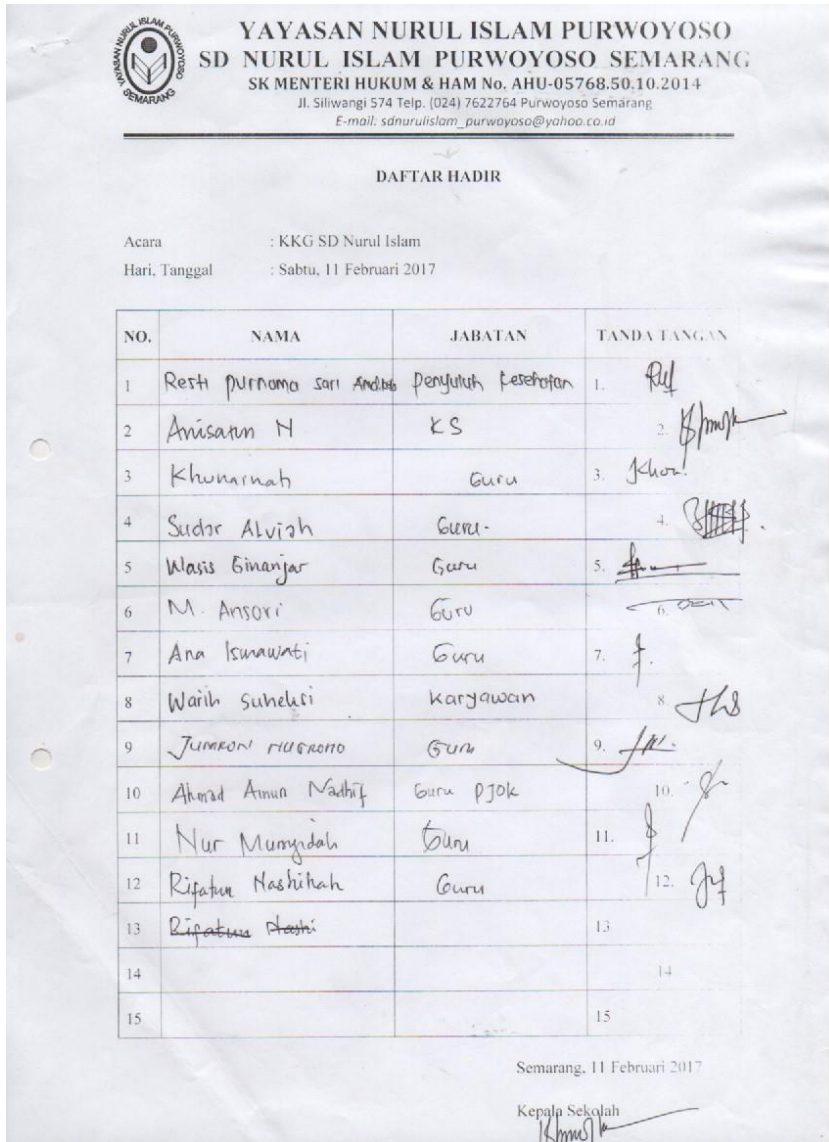 YAYASAN NURUL ISLAM PURWOYOSO
SEMARANG
YAYASAN NURUL ISLAM PURWOYOSO
SD NURUL ISLAM PURWOYOSO SEMARANG
SK MENTERI HUKUM & HAM No. AHU-05768.50.10.2014
Jl. Siliwangi 574 Telp. (024) 7622764 Purwoyoso Semarang
E-mail: sdnurulislam_purwoyoso@yahoo.co.id
DAFTAR HADIR
Acara : KKG SD Nurul Islam
Hari, Tanggal : Sabtu, 11 Februari 2017
NO. NAMA JABATAN TANDA TANGAN
1 Resti purnama sari penyuluh kesehatan 1.
2 Anisatun N KS 2.
3 Khunainah Guru 3.
4 Sudar Alviah Guru. 4.
5 Wasis Ginanjar Guru 5.
6 M. Ansori Guru 6.
7 Ana Ismawati Guru 7.
8 Warih Suhekti karyawan 8.
9 JUMRON NUGROHO Guru 9.
10 Ahmad Amun Nadhif Guru PJOK 10.
11 Nur Mursyidah Guru 11.
12 Rifatun Nashihah Guru 12.
13 Rifatun Nashi 13
14 14
15 15
Semarang, 11 Februari 2017
Kepala Sekolah